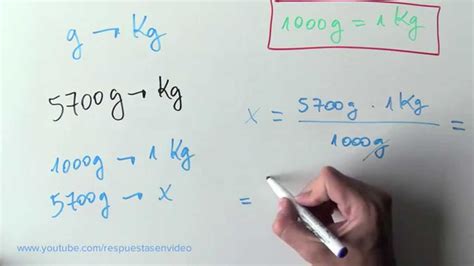 g → Kg
1000g = 1 Kg
5700g → Kg
1000g → 1 Kg
5700g → x
x = 5700g · 1 Kg / 1000g =
=
www.youtube.com/respuestasenvideo